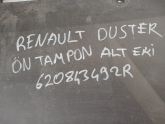 RENAULT DUSTER
ÖN TAMPON ALT EKİ
620843492R